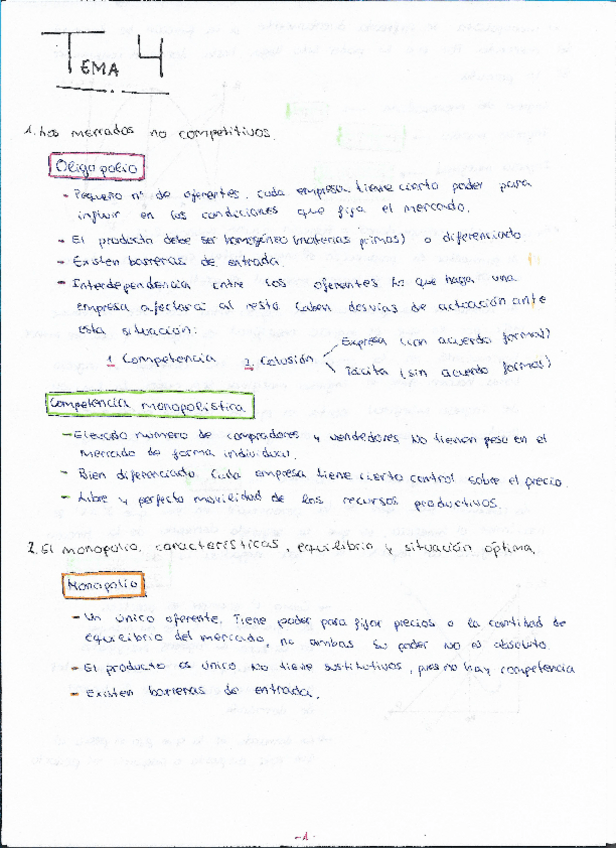 TEMA 4
1. Los mercados no competitivos.
Oligopolio
- Pequeño nº de oferentes. Cada empresa tiene cierto poder para
influir en las condiciones que fija el mercado.
- El producto debe ser homogéneo (materias primas) o diferenciado
- Existen barreras de entrada.
- Interdependencia entre los oferentes lo que haga una
empresa afectará al resto. Caben dos vías de actuación ante
esta situación:
1. Competencia 2. Colusión
Expresa (con acuerdo formal)
Tácita (sin acuerdo formal)
Competencia monopolística
- Elevado número de compradores y vendedores No tienen peso en el
mercado de forma individual.
- Bien diferenciado. Cada empresa tiene cierto control sobre el precio.
- Libre y perfecta movilidad de los recursos productivos.
2. El monopolio, características, equilibrio y situación óptima.
Monopolio
- Un único oferente. Tiene poder para fijar precios o la cantidad de
equilibrio del mercado, no ambas Su poder no es absoluto.
- El producto es único No tiene sustitutivos, pues no hay competencia
- Existen barreras de entrada.
-1-